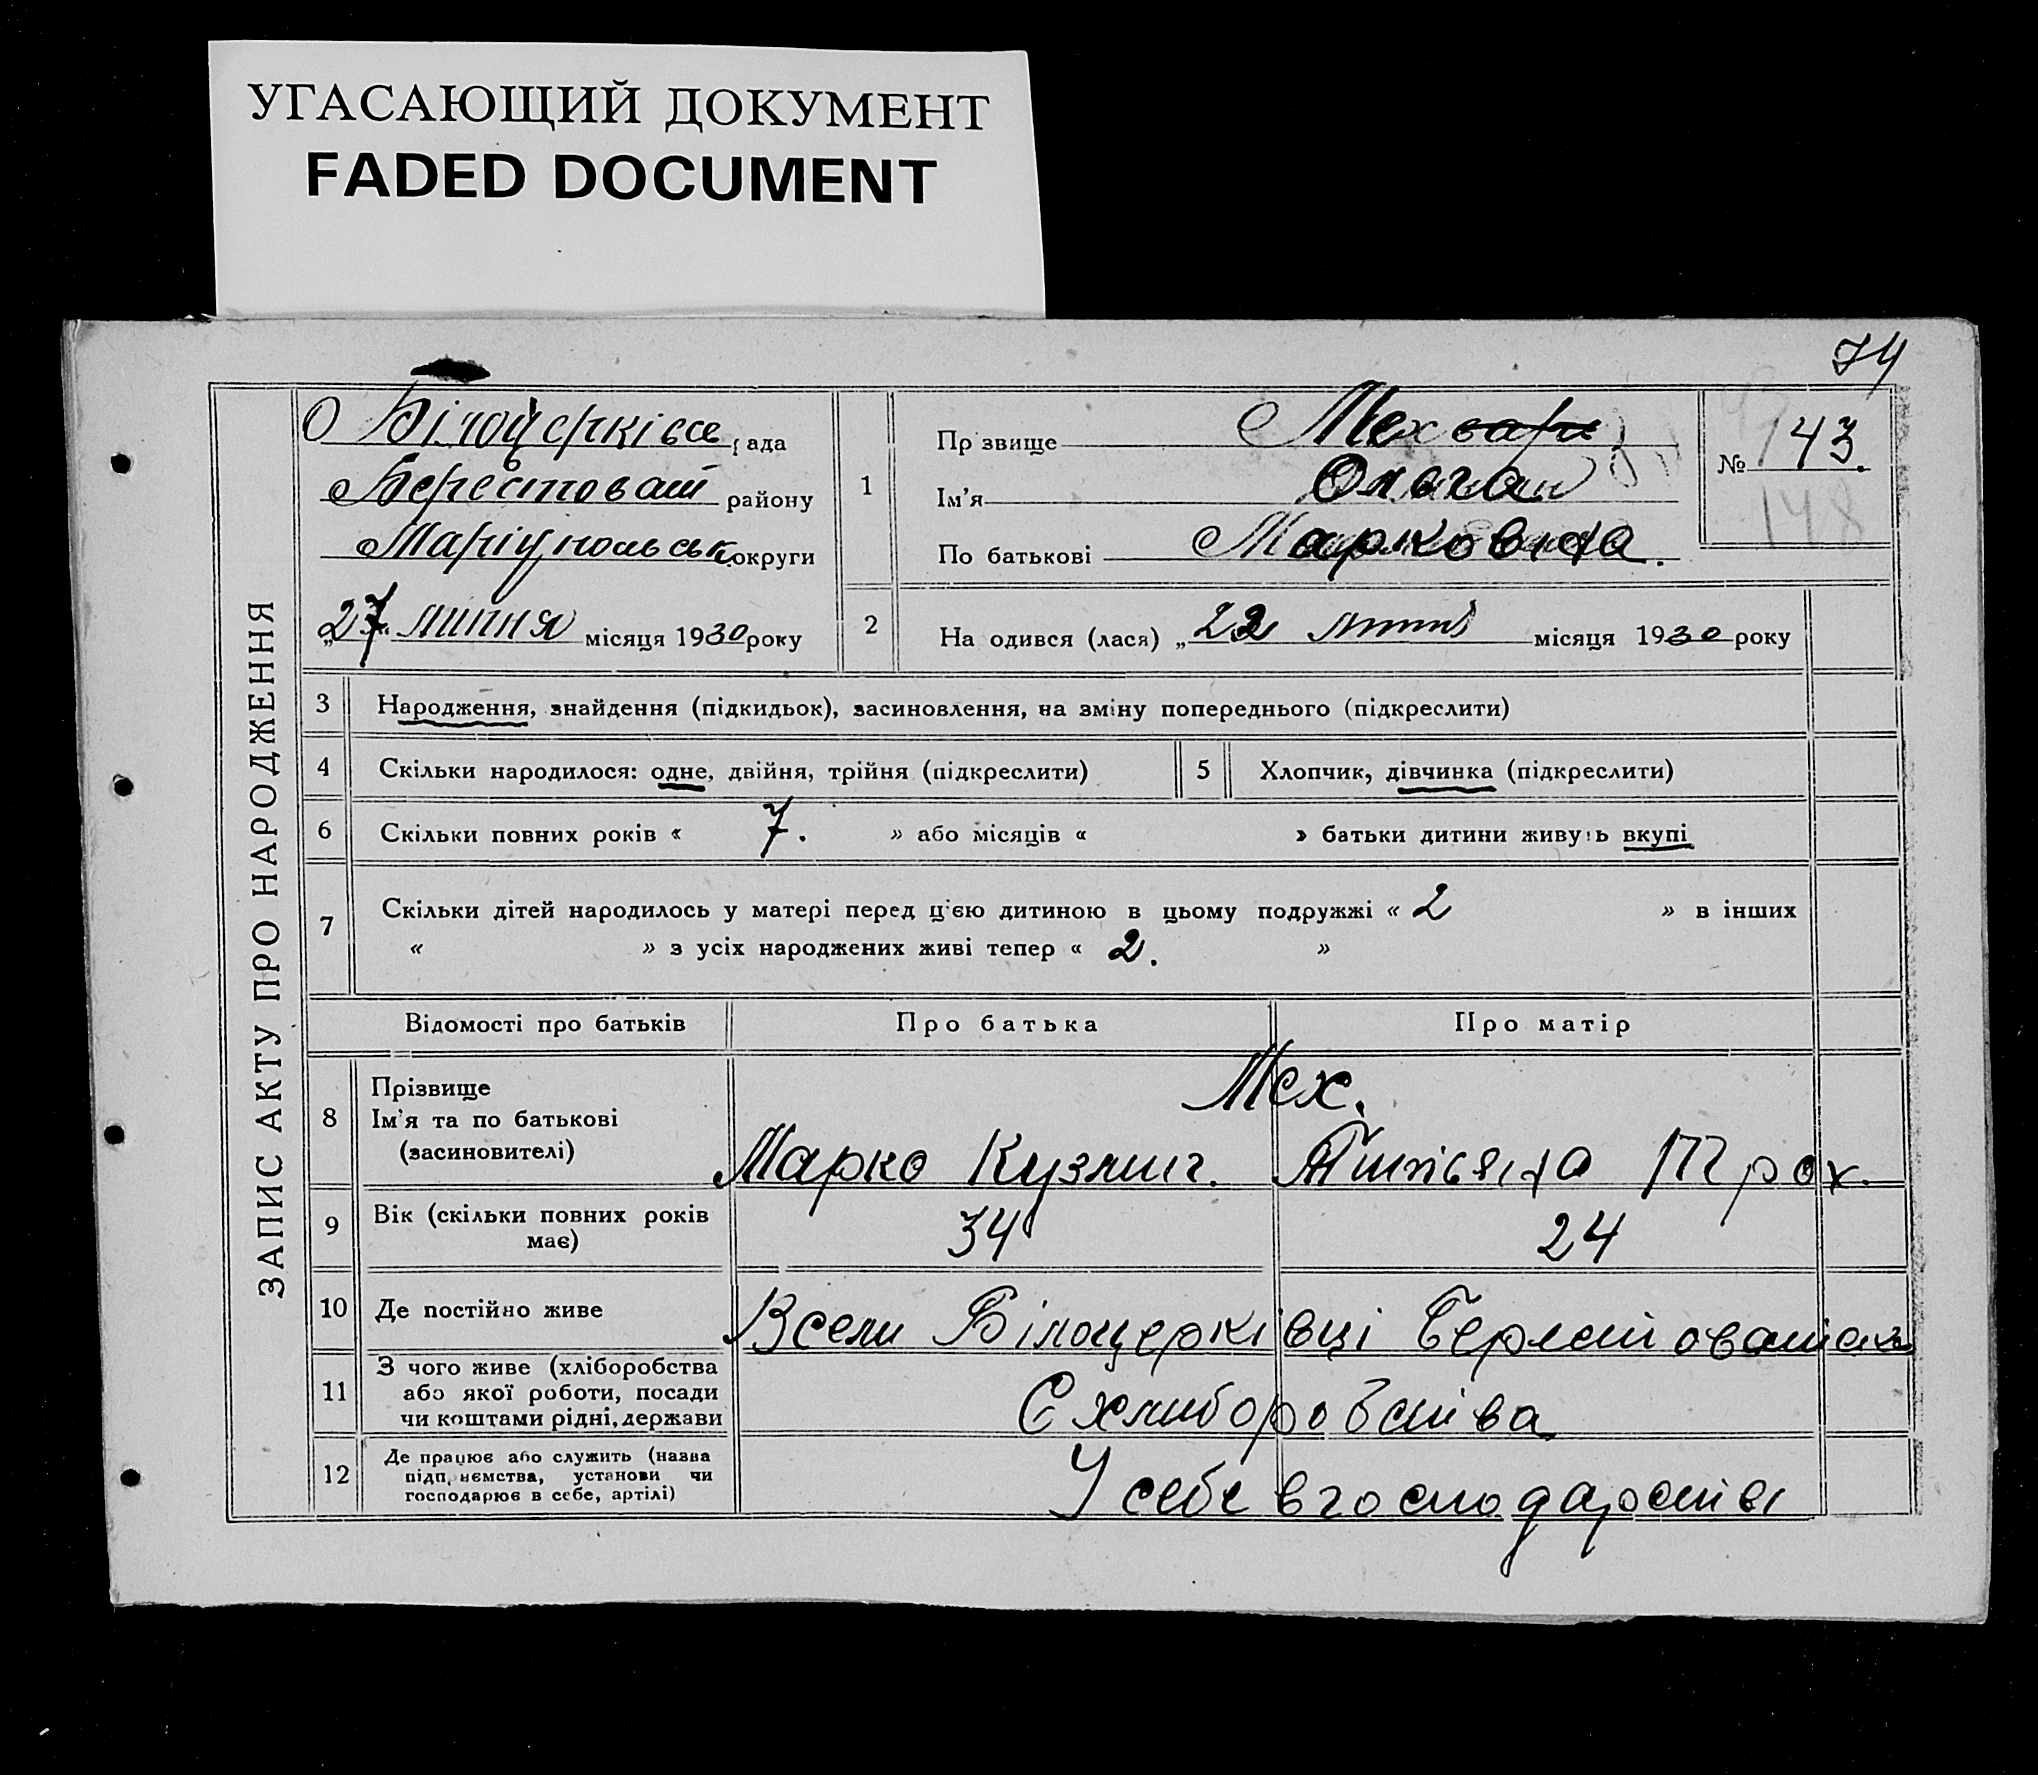 УГАСАЮЩИЙ ДОКУМЕНТ
FADED DOCUMENT
74
ЗАПИС АКТУ ПРО НАРОДЖЕННЯ
Білоцерківсь рада
Берестоват району
Маріупольськ округи
„27„ липня місяця 1930 року
1
Прізвище Мех
Ім'я Ольга
По батькові Марковна.
№ 143.
148
2
На одився (лася) „22 липня місяця 1930 року
3 Народження, знайдення (підкидьок), засиновлення, на зміну попереднього (підкреслити)
4 Скільки народилося: одне, двійня, трійня (підкреслити)
5 Хлопчик, дівчинка (підкреслити)
6 Скільки повних років « 7. » або місяців « » батьки дитини живуть вкупі
7 Скільки дітей народилось у матері перед цією дитиною в цьому подружжі « 2 » в інших
« » з усіх народжених живі тепер « 2. »
Відомості про батьків Про батька Про матір
8 Прізвище Мех.
Ім'я та по батькові
(засновителі) Марко Кузмич. Титьяна Трох.
9 Вік (скільки повних років
має) 34 24
10 Де постійно живе В сели Білоцерківці
11 З чого живе (хліборобства
або якої роботи, посади
чи коштами рідні, держави
С хлиборобства
12 Де працює або служить (назва
підп. иємства, установи чи
господарює в себе, артілі)
У себе в господарстві